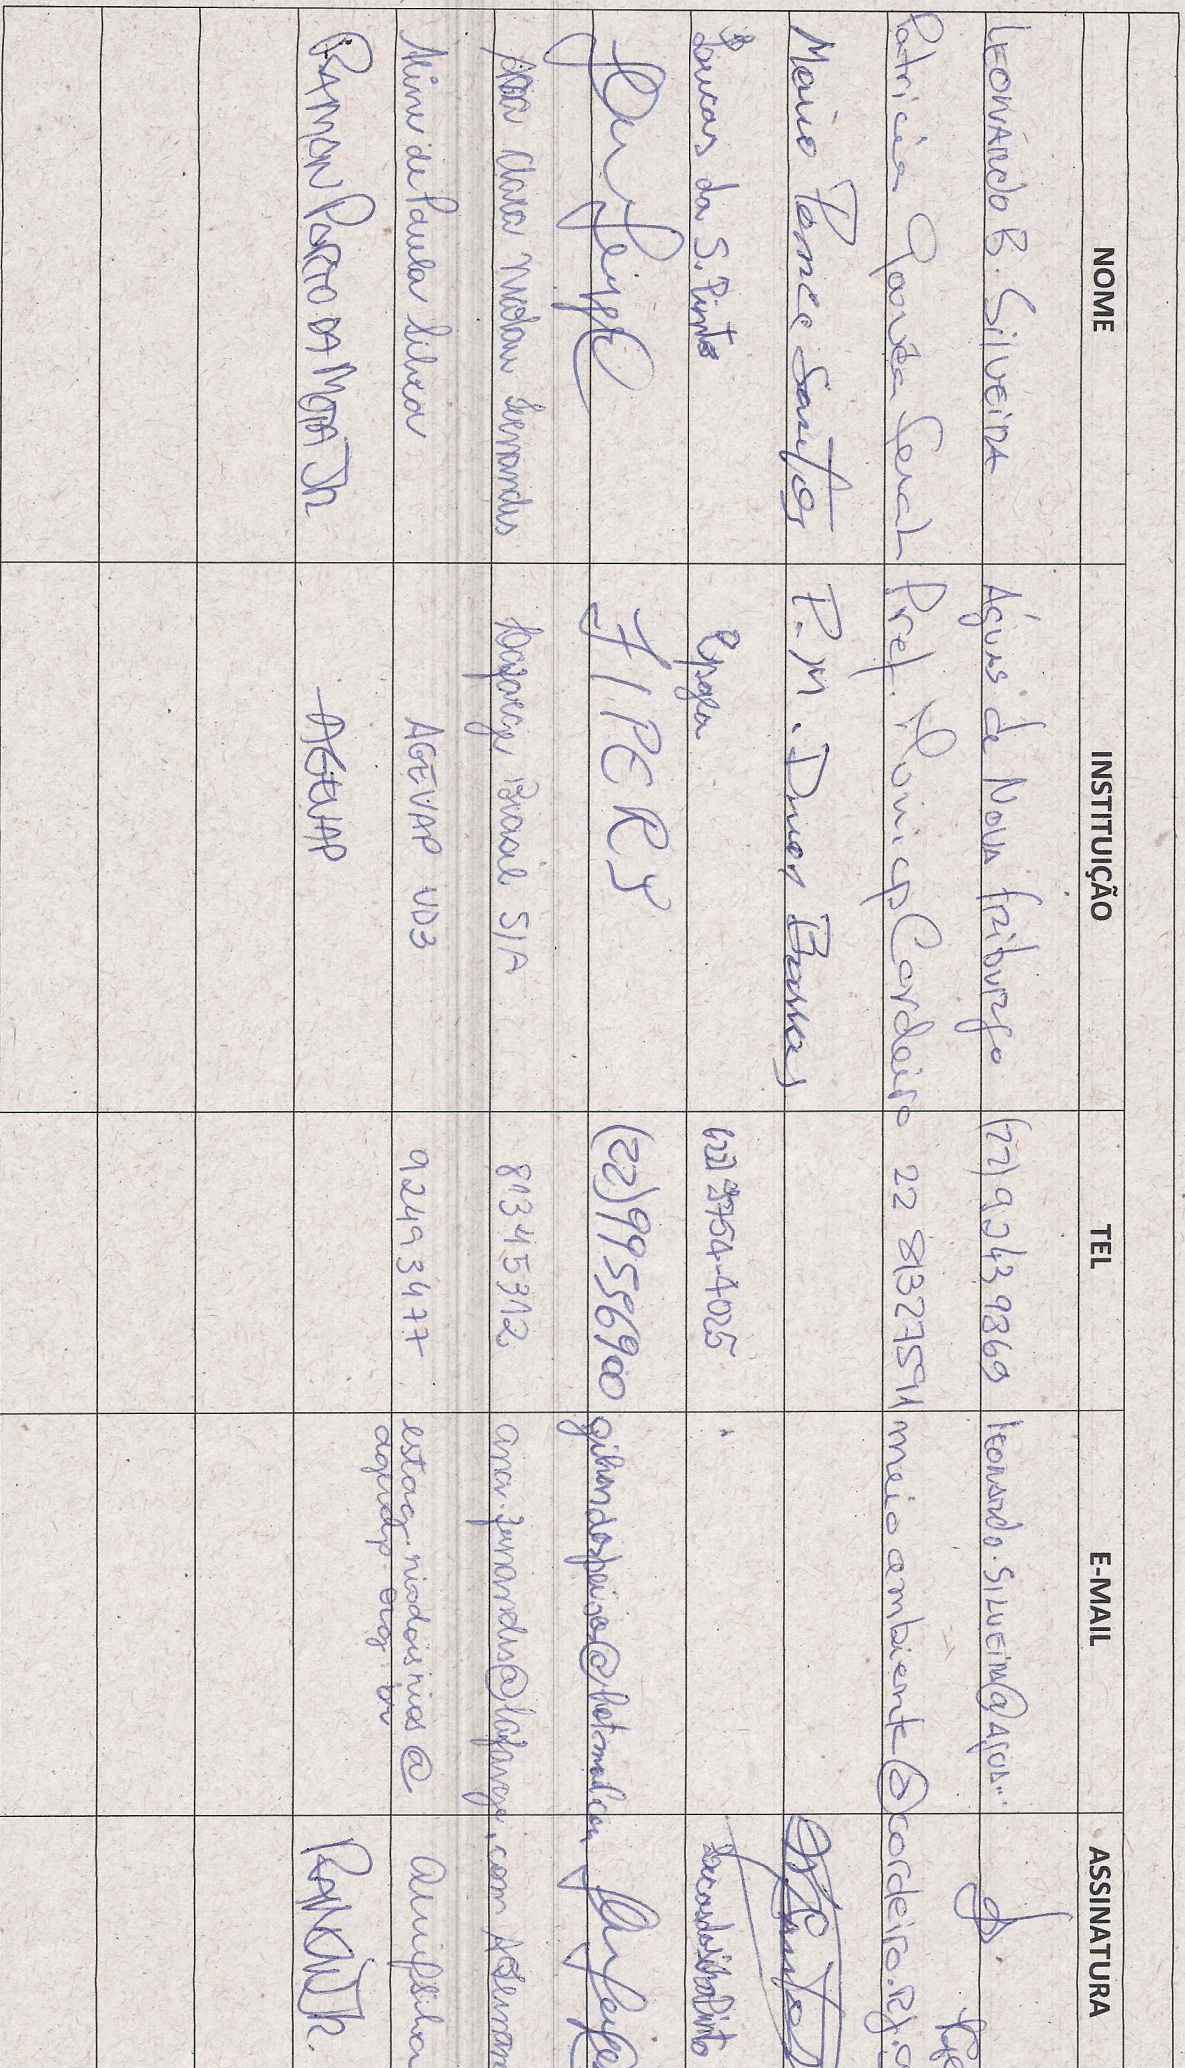 NOME INSTITUIÇÃO TEL E-MAIL ASSINATURA
LEONARDO B. SILVEIRA Águas de Nova Friburgo (22) 92439869 leonardo.silveira@aguas...
Patricia Pref. Municip Cordeiro 22 81327591 meioambiente@cordeiro.rj.g
Mario Ponce Santos P.M. Duas Barras
Lucas da S. Pinto (22) 2754-4025 Lucas da Silva Pinto
FIPERJ (22) 99556900
Ana Clara Fernandes Lafarge Brasil S/A 81345312 ana.fernandes@lafarge.com
Aline de Paula Silva AGEVAP UD3 92493477 estag.riodoisrios@
agevap.org.br
RAMON PORTO DA MOTA JR AGEVAP RAMON JR.